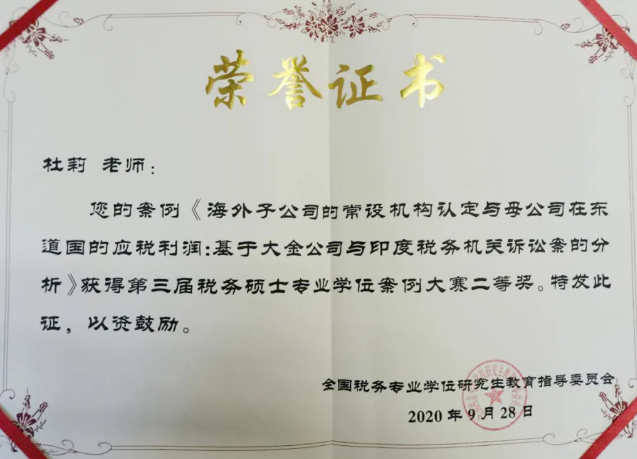 荣誉证书
杜莉 老师：
您的案例《海外子公司的常设机构认定与母公司在东
道国的应税利润：基于大金公司与印度税务机关诉讼案的分
析》获得第三届税务硕士专业学位案例大赛二等奖。特发此
证，以资鼓励。
全国税务专业学位研究生教育指导委员会
2020 年 9 月 28 日